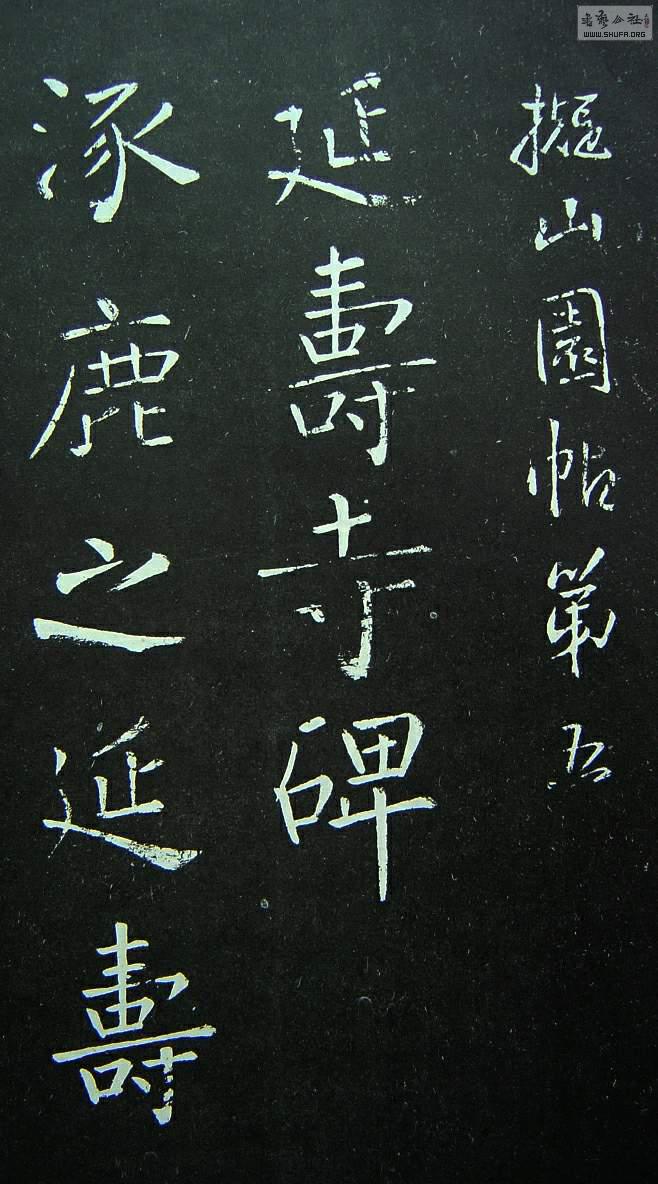 擬山園帖第五
延壽寺碑
涿鹿之延壽
WWW.SHUFA.ORG